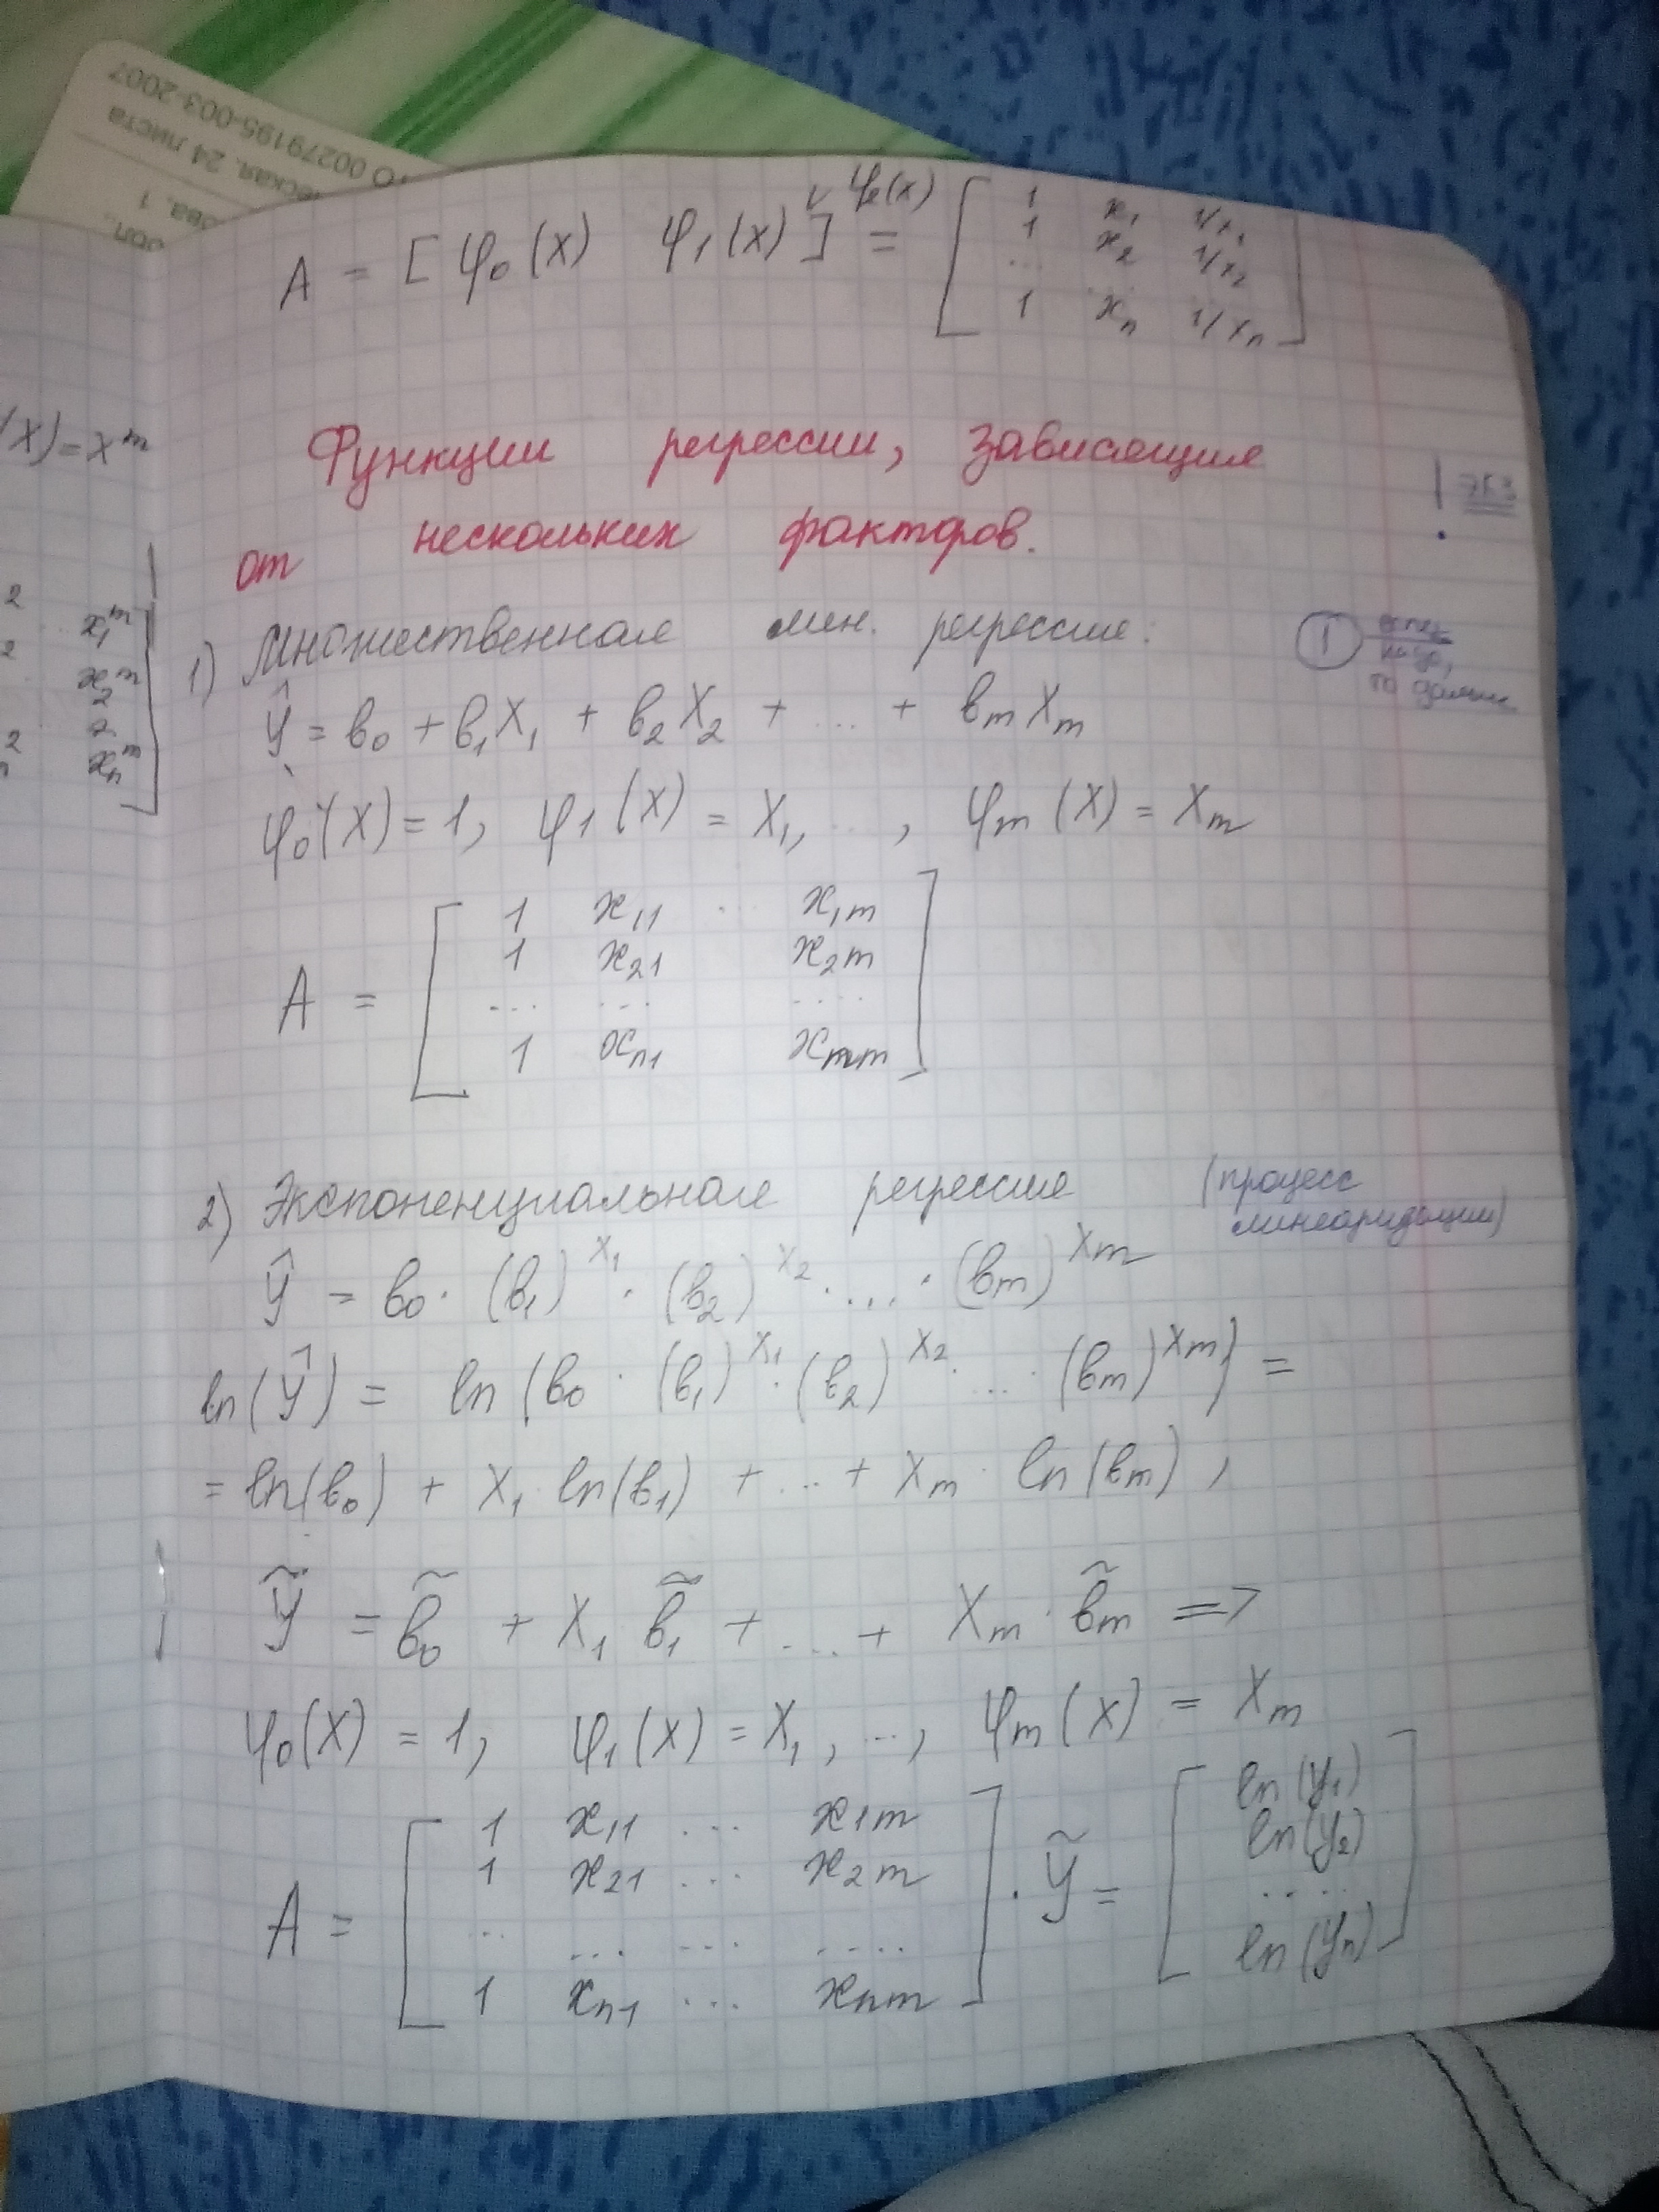 2007-003-00279195 ТО
еская. 24 листа
ова. 1
(x) = x^m
2 x₁^m
2 x₂^m
2 xₙ^m
φ₂(x)
A = [ φ₀(x) φ₁(x) ] = [ 1 x₁ 1/x₁
1 x₂ 1/x₂
... ... ...
1 xₙ 1/xₙ ]
Функции регрессии, зависящие
от нескольких факторов.
! экз
1) Множественная лин. регрессия:
①
то дальше
ŷ = b₀ + b₁X₁ + b₂X₂ + ... + bₘXₘ
φ₀(X) = 1, φ₁(X) = X₁, ..., φₘ(X) = Xₘ
A = [ 1 x₁₁ ... x₁ₘ
1 x₂₁ x₂ₘ
... ... ....
1 xₙ₁ xₘₘ ]
2) Экспоненциальная регрессия (процесс
линеаризации)
ŷ = b₀ · (b₁)^X₁ · (b₂)^X₂ · ... · (bₘ)^Xₘ
ln(ŷ) = ln(b₀ · (b₁)^X₁ · (b₂)^X₂ · ... (bₘ)^Xₘ) =
= ln(b₀) + X₁ ln(b₁) + ... + Xₘ · ln(bₘ),
ỹ = b̃₀ + X₁ b̃₁ + ... + Xₘ · b̃ₘ =>
φ₀(X) = 1, φ₁(X) = X₁, ..., φₘ(X) = Xₘ
A = [ 1 x₁₁ ... x₁ₘ
1 x₂₁ ... x₂ₘ
.. ... ... ....
1 xₙ₁ ... xₙₘ ] . ỹ = [ ln(y₁)
ln(y₂)
.....
ln(yₙ) ]